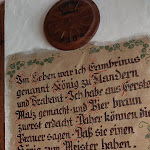 Im Leben war ich Gambrinus
genannt König zu Flandern
und Brabant · Ich habe aus Gersten
Malz gemacht und Bier braun
zuerst erdacht · Daher können die
Brauer sagen · Daß sie einen
König zum Meister haben.